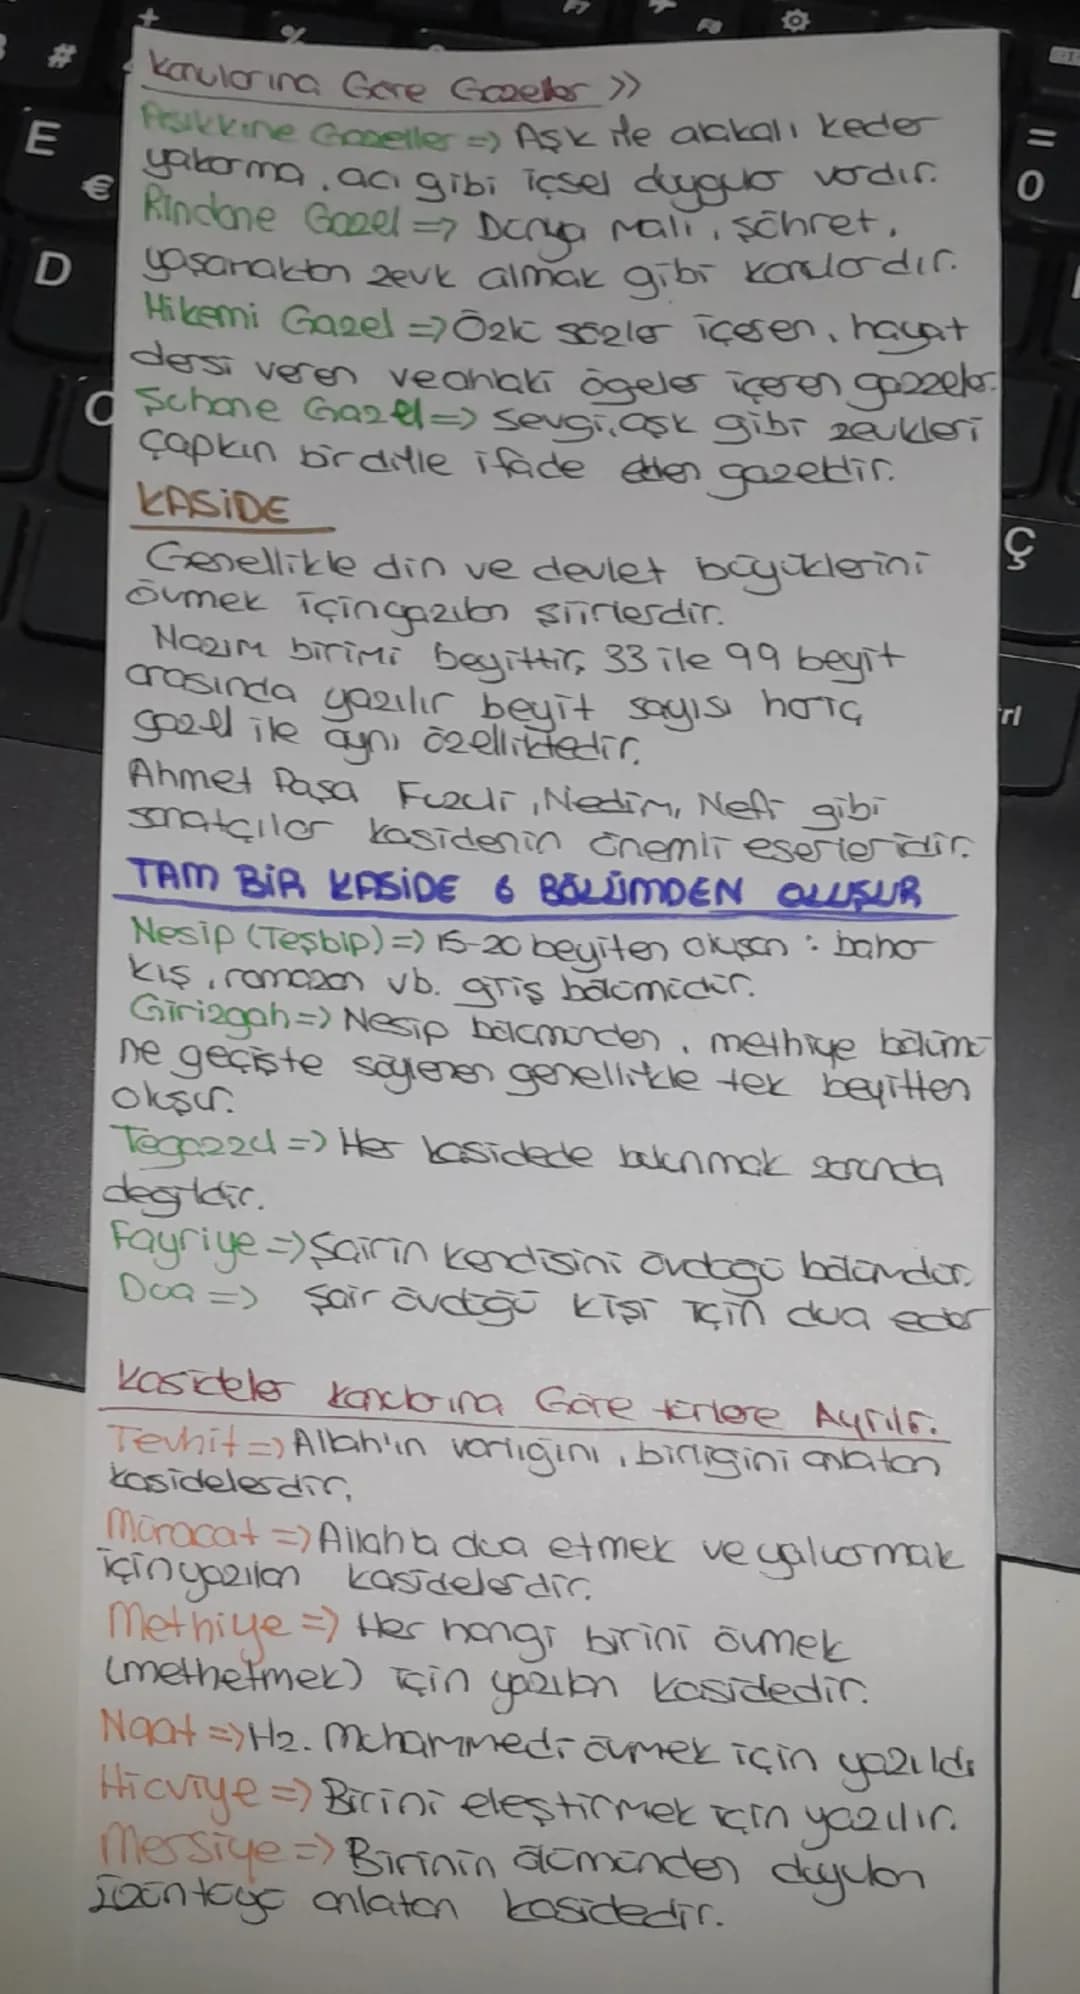 Konularına Göre Gazeller >>
Aşıkkine Gazeller => Aşk ile alakalı keder
yakarma, acı gibi içsel duygular vardır.
Rindane Gazel => Dünya malı, şöhret,
yaşamaktan zevk almak gibi konulardır.
Hikemi Gazel => Özlü sözler içeren, hayat
dersi veren ve ahlaki ögeler içeren gazzeler.
Şuhane Gazel => Sevgi, aşk gibi zevkleri
çapkın bir dille ifade eden gazeldir.
KASİDE
Genellikle din ve devlet büyüklerini
övmek için yazılan şiirlerdir.
Nazım birimi beyittir, 33 ile 99 beyit
arasında yazılır beyit sayısı hariç
gazel ile aynı özelliktedir.
Ahmet Paşa Fuzuli, Nedim, Nefi gibi
sanatçılar kasidenin önemli eserleridir.
TAM BİR KASİDE 6 BÖLÜMDEN OLUŞUR
Nesip (Teşbip) => 15-20 beyiten oluşan : bahar
kış, ramazan vb. giriş bölümüdür.
Girizgah => Nesip bölümünden, methiye bölümü
ne geçişte söylenen genellikle tek beyitten
oluşur.
Tegazzül => Her kasidede bulunmak zorunda
değildir.
Fayriye => Şairin kendisini övdüğü bölümdür.
Dua => Şair övdüğü kişi için dua eder
Kasideler konularına Göre türlere Ayrılır.
Tevhit => Allah'ın varlığını, birliğini anlatan
kasidelerdir.
Münacat => Allah'a dua etmek ve yalvarmak
için yazılan kasidelerdir.
Methiye => Her hangi birini övmek
(methetmek) için yazılan kasidedir.
Naat => Hz. Muhammedi övmek için yazıldı
Hicviye => Birini eleştirmek için yazılır.
Mersiye => Birinin ölümünden duyulan
üzüntüyü anlatan kasidedir.
E
€
D
#
%
F7
F8
=
0
Ç
rl